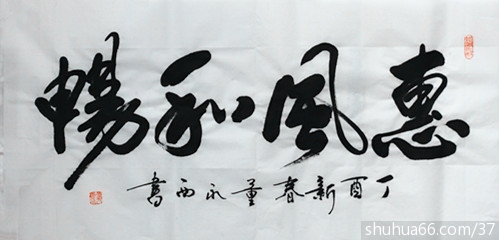 惠风和暢
丁酉新春董永西書
shuhua66.com/37